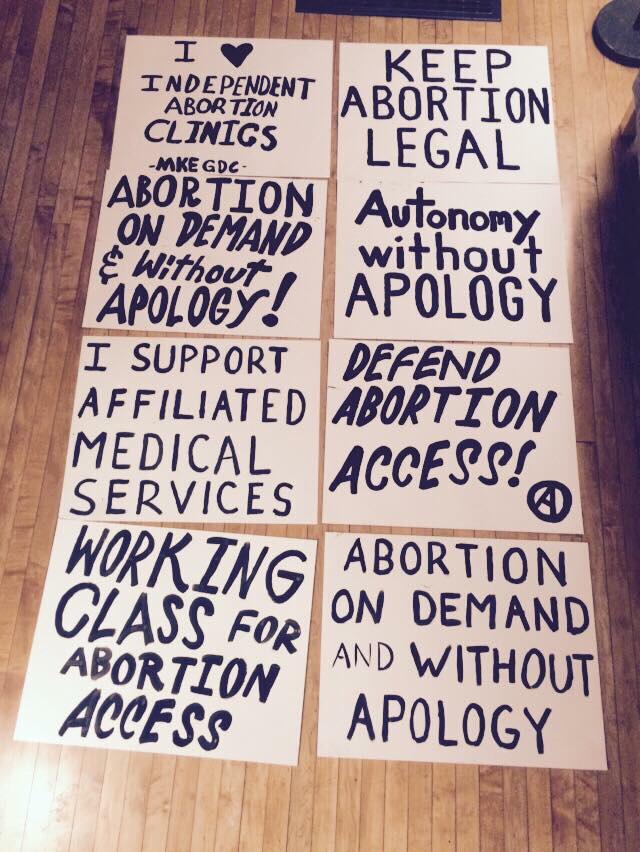 I ♥
INDEPENDENT
ABORTION
CLINICS
-MKE GDC-
KEEP
ABORTION
LEGAL
ABORTION
ON DEMAND
& Without
APOLOGY!
Autonomy
without
APOLOGY
I SUPPORT
AFFILIATED
MEDICAL
SERVICES
DEFEND
ABORTION
ACCESS!
Ⓐ
WORKING
CLASS FOR
ABORTION
ACCESS
ABORTION
ON DEMAND
AND WITHOUT
APOLOGY